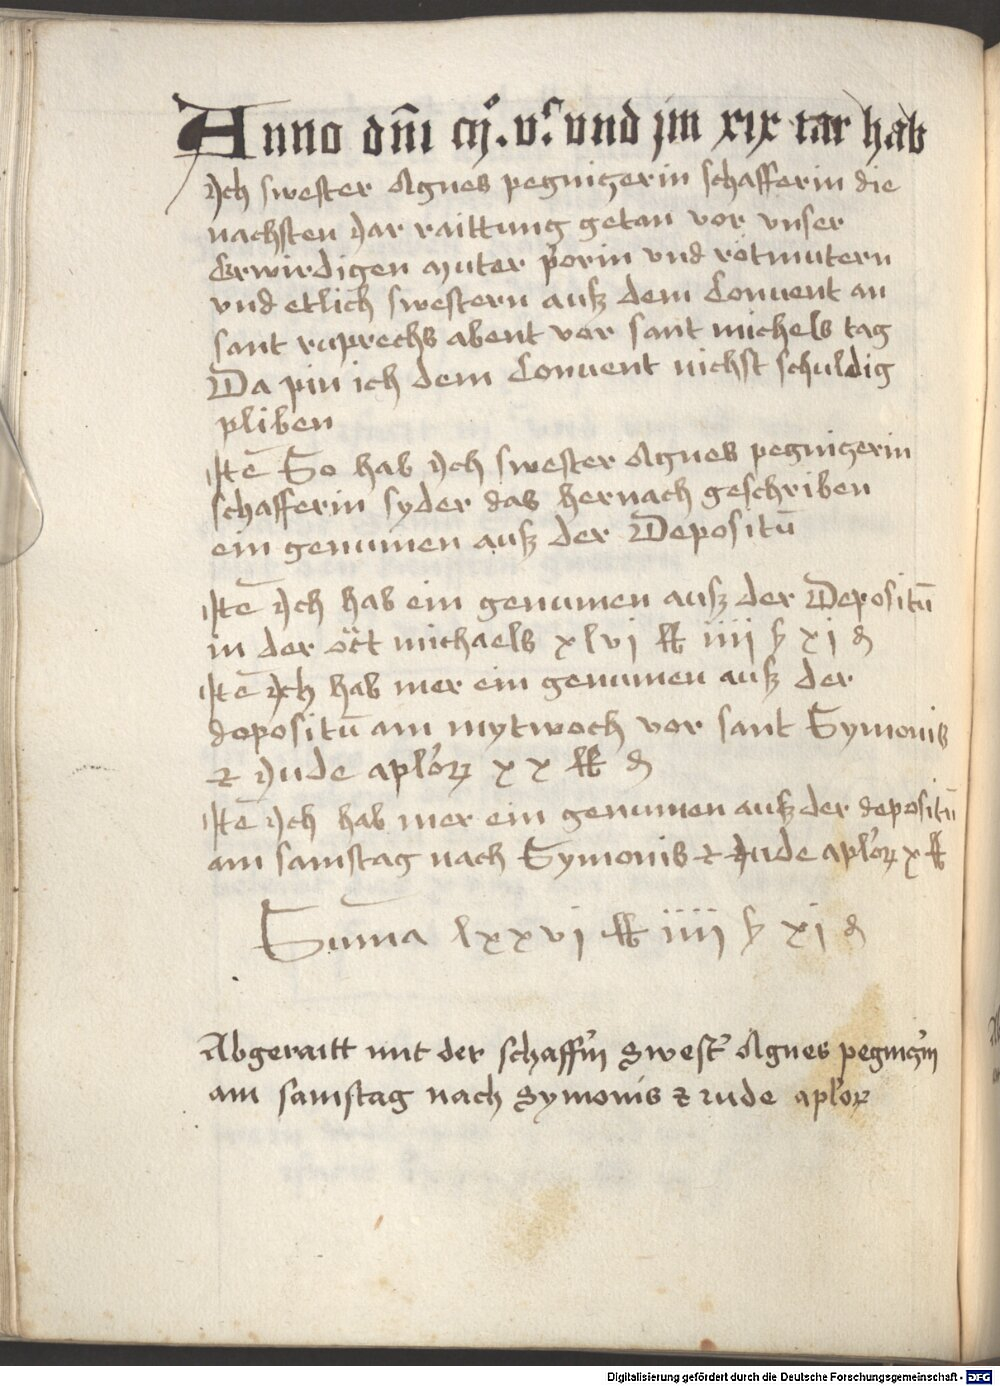 Anno dm̄ mͦ. vͨ. vnd jm xix iar hab
Ych swester Agnes pegniczerin schafferin die
nachsten yar raittung getan vor vnser
Erwirdigen muter p̓orin vnd rotmutern
vnd etlich swestern auß dem Conuent an
sant ruprechs abent vor sant michels tag
Da pin ich dem Conuent nichst schuldig
pliben
Jtē So hab ych swester Agnes pegniczerin
schafferin syder das hernach geschriben
ein genumen auß der Depositū
Jtē ych hab ein genumen auß der Depositū
in der oct michaels xlvj ℔ iiij ß xj ₰
Jtē ych hab mer ein genumen auß der
depositū am mytwoch vor sant Symonis
⁊ yude apl'oꝝ xx ℔ ₰
Jtē ych hab mer ein genumen auß der depositū
am samstag nach Symonis ⁊ yude apl'oꝝ x ℔
Suma lxxvj ℔ iiij ß xj ₰
Abgeraitt mit der schaff'in swest' Agnes pegnicz'in
am samstag nach Symonis ⁊ iude apl'oꝝ
Digitalisierung gefördert durch die Deutsche Forschungsgemeinschaft - DFG